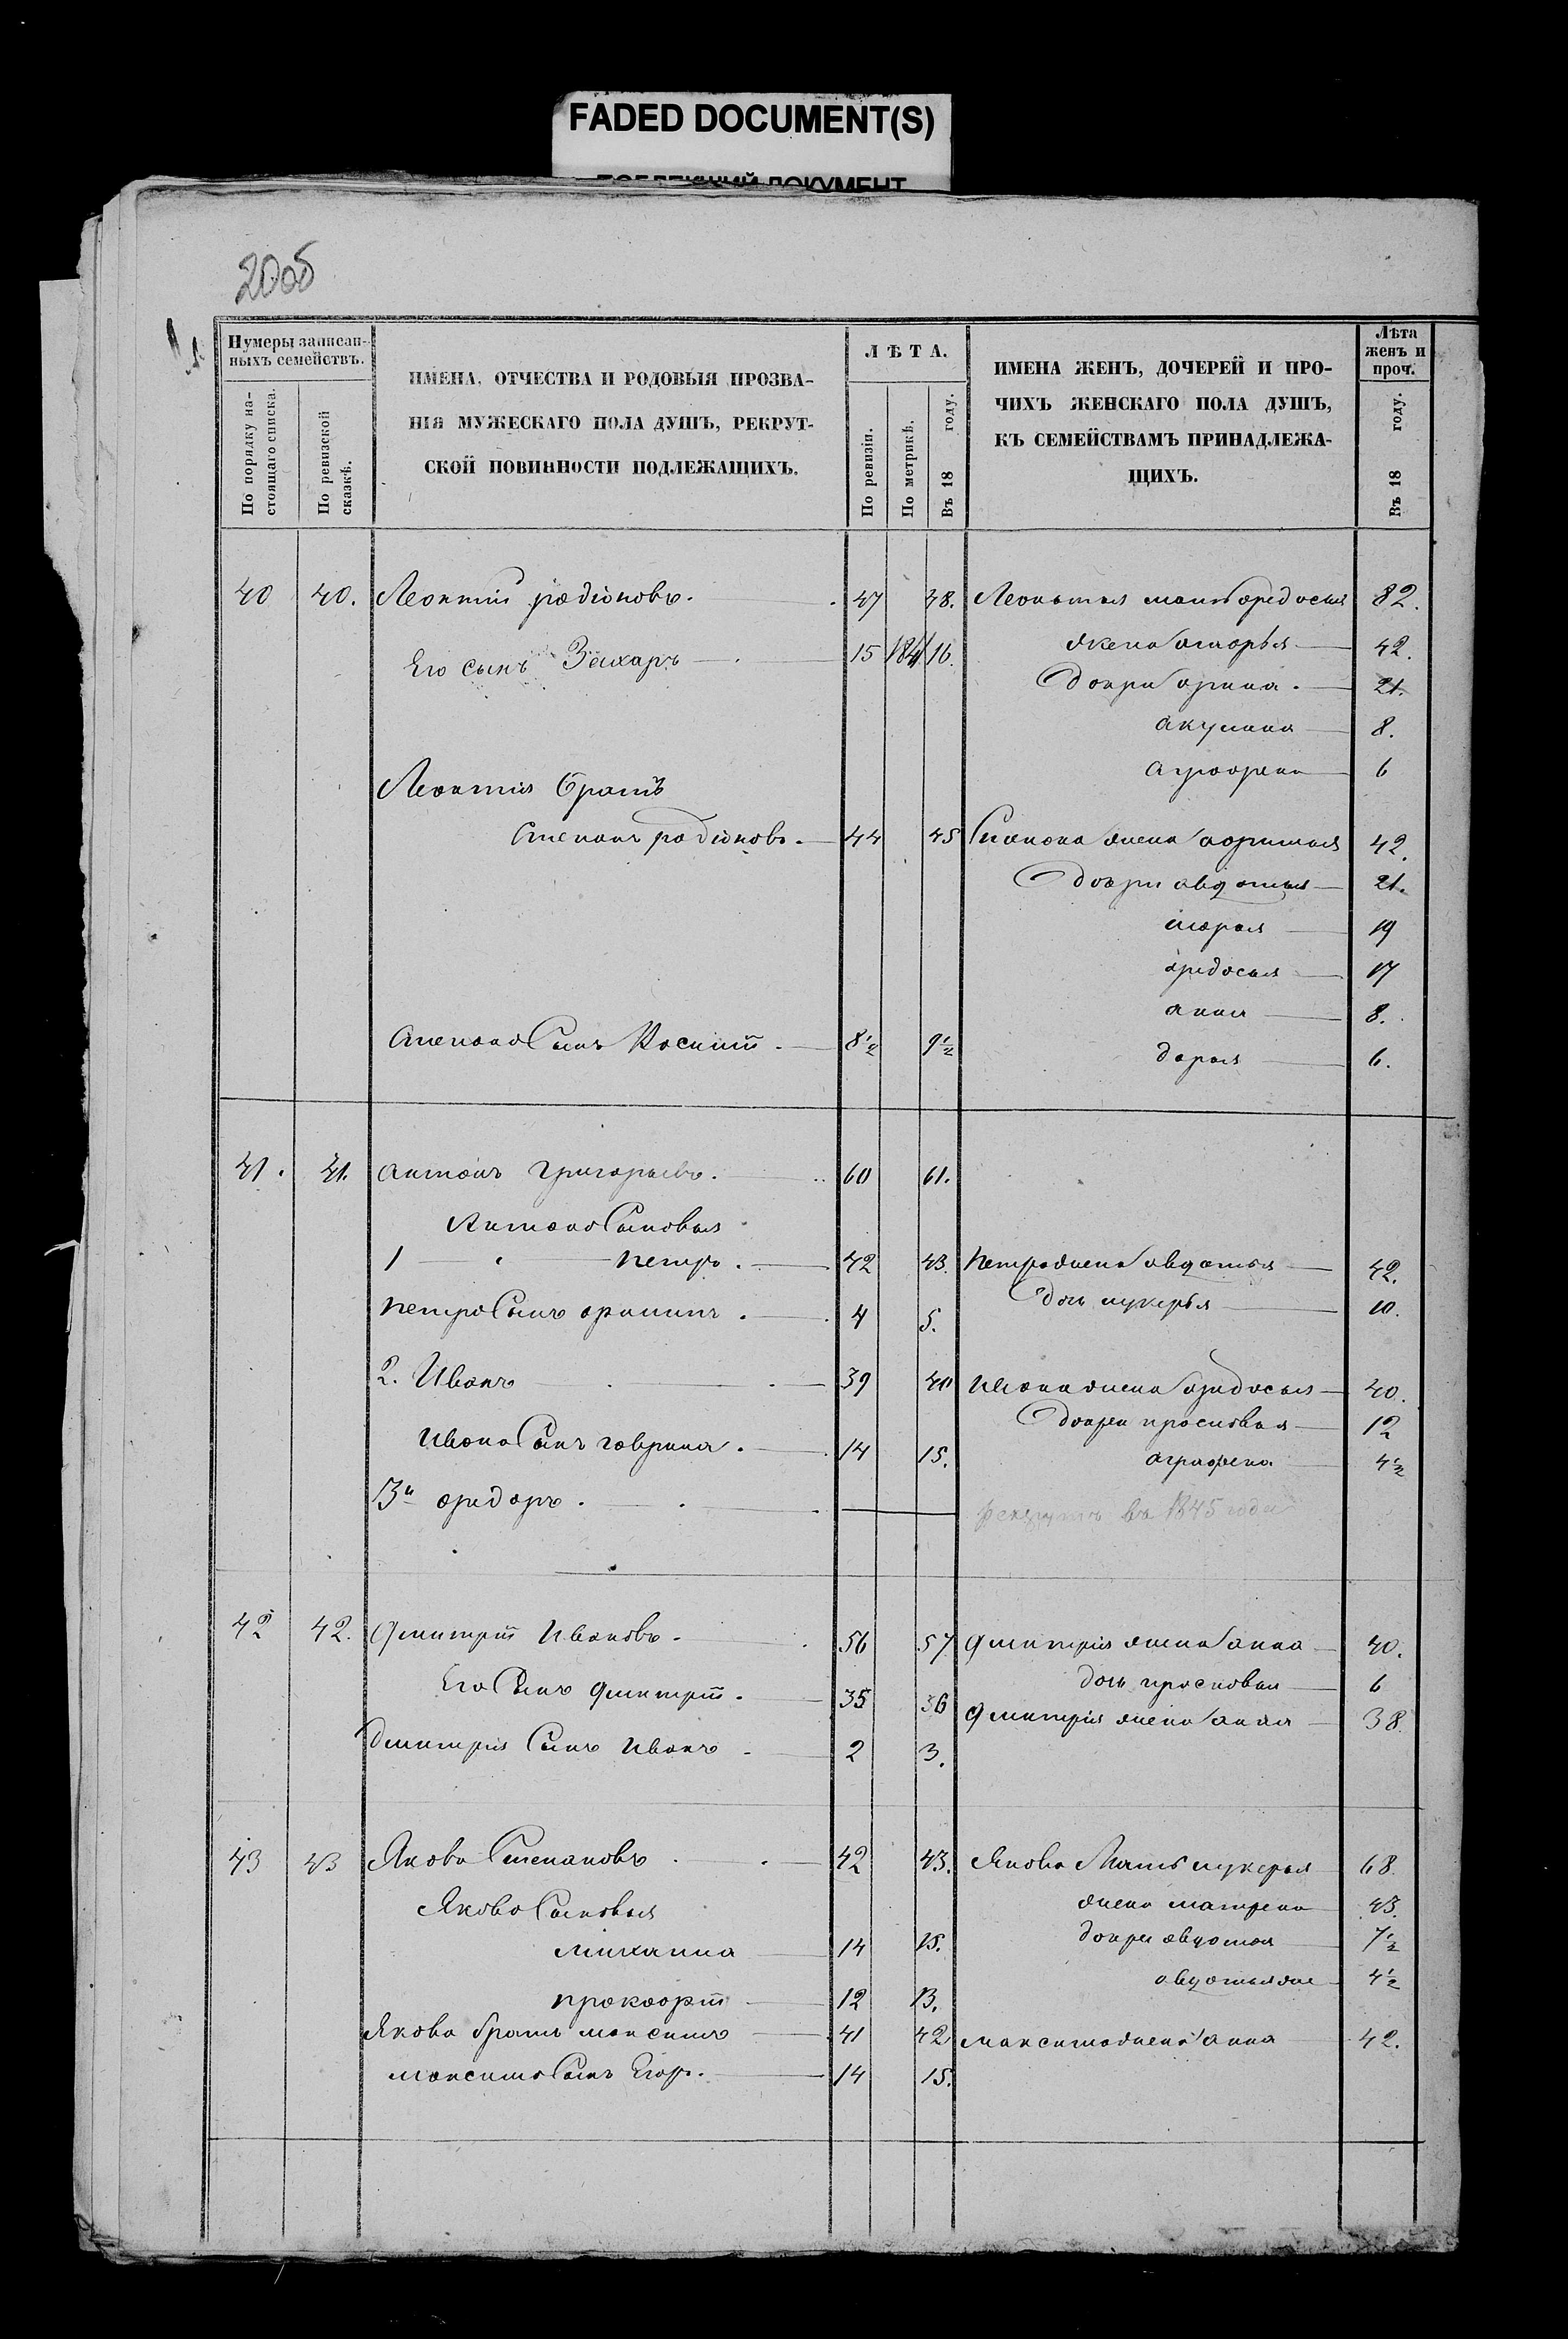 FADED DOCUMENT(S)
200б
Нумеры записан-
ныхъ семействъ.
По порядку на-
стоящаго списка.
По ревизской
сказкѣ.
ИМЕНА, ОТЧЕСТВА И РОДОВЫЯ ПРОЗВА-
НІЯ МУЖЕСКАГО ПОЛА ДУШЪ, РЕКРУТ-
СКОЙ ПОВИННОСТИ ПОДЛЕЖАЩИХЪ.
ЛѢТА.
По ревизіи.
По метрикѣ.
Въ 18 году.
ИМЕНА ЖЕНЪ, ДОЧЕРЕЙ И ПРО-
ЧИХЪ ЖЕНСКАГО ПОЛА ДУШЪ,
КЪ СЕМЕЙСТВАМЪ ПРИНАДЛЕЖА-
ЩИХЪ.
Лѣта
женъ и
проч.
Въ 18 году.
40 40. Леонтий родіоновъ. 47 48. Леонтия мать федосия 82.
Его сынъ Захаръ 15 184 16. жена марья 42.
дочри орина. 21.
акулина 8.
аграфена 6
Леонтия братъ
Степанъ родионовъ. 44 45 Степана жена 42.
дочри авдотья 21.
марья 19
федосья 17
анна 8.
Степана сынъ 8½ 9½
дарья 6.
41. 41. антонъ григорьевъ. 60 61.
Антона сыновья
1 петръ. 42 43. петра жена авдотья 42.
дочь лукерья 10.
петра сынъ филипъ. 4 5.
2. Иванъ 39 40 ивана жена федосья 40.
дочри просковья 12
ивана сынъ гаврила. 14 15. аграфена 4½
3й федоръ. рекрутъ въ 1845 годе
42 42. дмитрий Ивановъ. 56 57 дмитрия жена анна 40.
дочь просковья 6
Его сынъ дмитрий. 35 36 дмитрия жена анна 38.
дмитрия сынъ иванъ 2 3.
43 43 Яковъ Степановъ 42 43. Якова Мать лукерья 68.
Якова сыновья жена матрена 43.
михаила 14 15. дочри авдотья 7½
прокофий 12 13. авдотья же 4½
Якова братъ максимъ 41 42 максима жена анна 42.
максима сынъ Егор. 14 15.